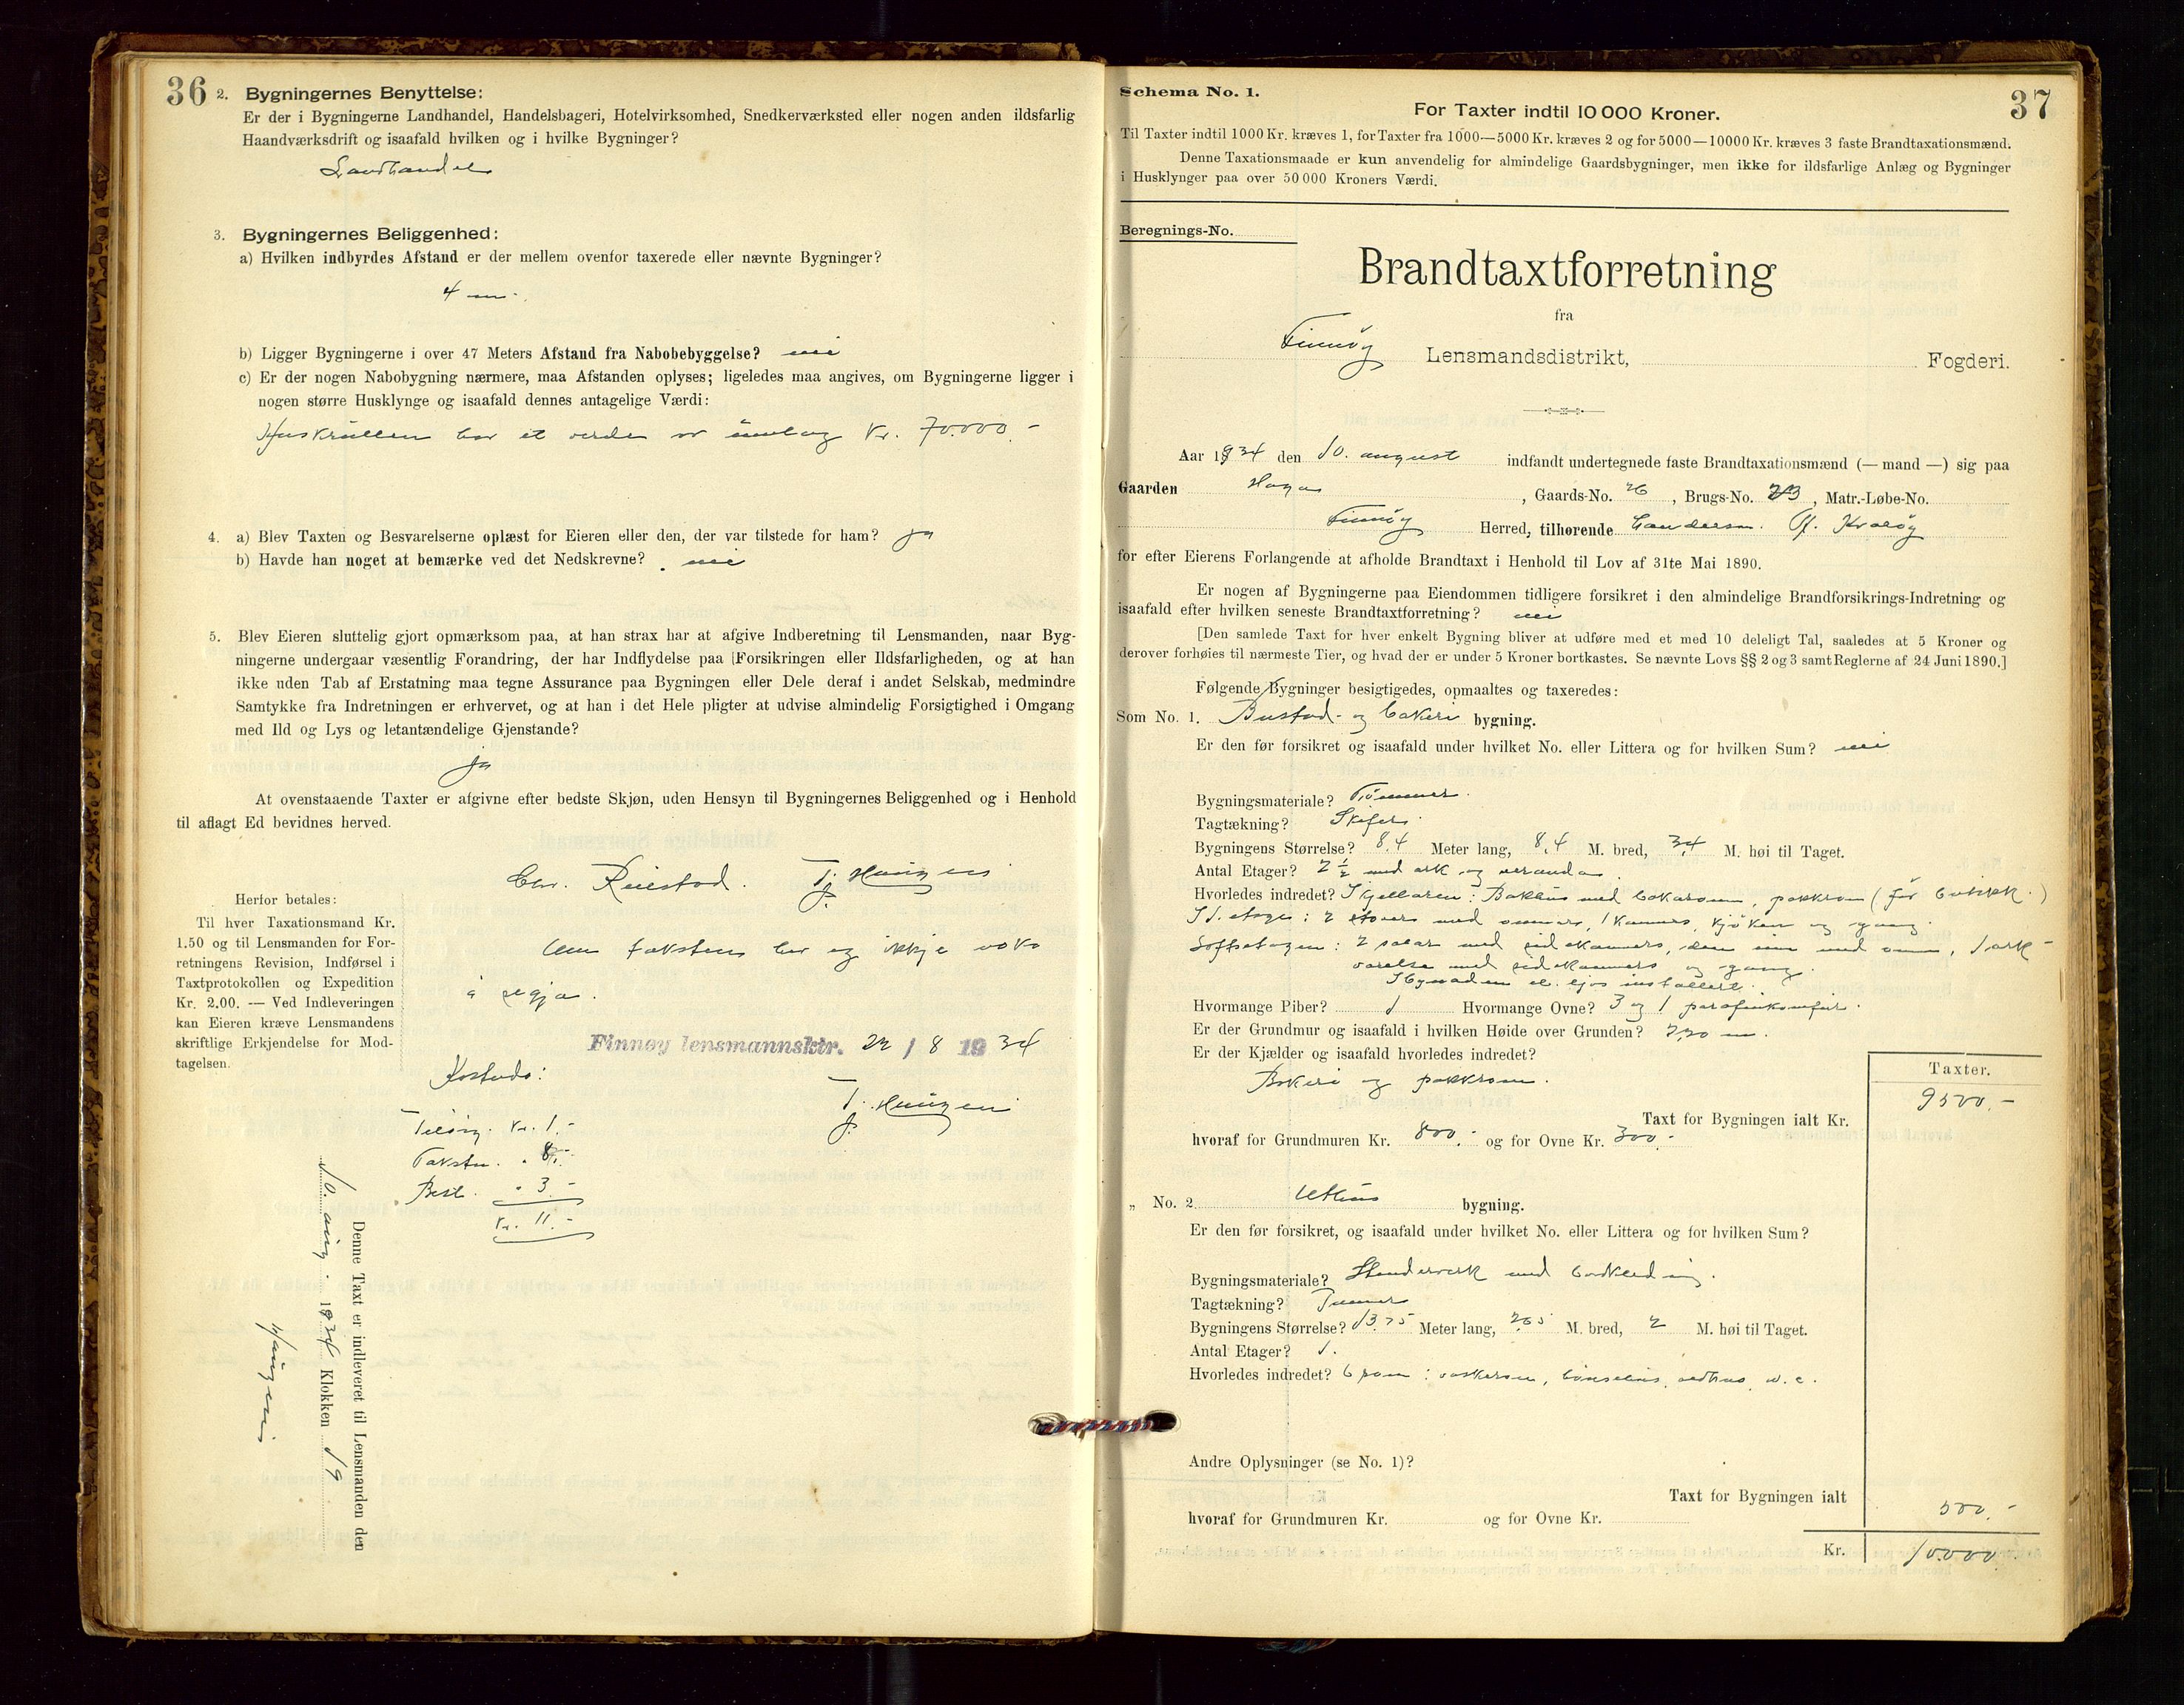 36
2. Bygningernes Benyttelse:
Er der i Bygningerne Landhandel, Handelsbageri, Hotelvirksomhed, Snedkerværksted eller nogen anden ildsfarlig
Haandværksdrift og isaafald hvilken og i hvilke Bygninger?
Landhandel
3. Bygningernes Beliggenhed:
a) Hvilken indbyrdes Afstand er der mellem ovenfor taxerede eller nævnte Bygninger?
4 m.
b) Ligger Bygningerne i over 47 Meters Afstand fra Nabobebyggelse? nei
c) Er der nogen Nabobygning nærmere, maa Afstanden oplyses; ligeledes maa angives, om Bygningerne ligger i
nogen større Husklynge og isaafald dennes antagelige Værdi:
har et verde av umlag kr. 70.000.-
4. a) Blev Taxten og Besvarelserne oplæst for Eieren eller den, der var tilstede for ham? ja
b) Havde han noget at bemærke ved det Nedskrevne? nei
5. Blev Eieren sluttelig gjort opmærksom paa, at han strax har at afgive Indberetning til Lensmanden, naar Byg-
ningerne undergaar væsentlig Forandring, der har Indflydelse paa Forsikringen eller Ildsfarligheden, og at han
ikke uden Tab af Erstatning maa tegne Assurance paa Bygningen eller Dele deraf i andet Selskab, medmindre
Samtykke fra Indretningen er erhvervet, og at han i det Hele pligter at udvise almindelig Forsigtighed i Omgang
med Ild og Lys og letantændelige Gjenstande?
Ja
At ovenstaaende Taxter er afgivne efter bedste Skjøn, uden Hensyn til Bygningernes Beliggenhed og i Henhold
til aflagt Ed bevidnes herved.
Chr. Reilstad. T. Haugen
Herfor betales:
Til hver Taxationsmand Kr.
1.50 og til Lensmanden for For-
retningens Revision, Indførsel i
Taxtprotokollen og Expedition
Kr. 2.00. — Ved Indleveringen
kan Eieren kræve Lensmandens
skriftlige Erkjendelse for Mod-
tagelsen.
Um taksten har eg ikkje noko
å segja.
Finnøy lensmannsktr. 22 / 8 1934
T. Haugen
Kostnad:
Tilsyn. kr. 1.-
Takstn. " 8.-
Best. " 3.-
Kr. 11.-
Denne Taxt er indleveret til Lensmanden den
10. aug. 1934 Klokken 19
Haugen
37
Schema No. 1.
For Taxter indtil 10 000 Kroner.
Til Taxter indtil 1000 Kr. kræves 1, for Taxter fra 1000—5000 Kr. kræves 2 og for 5000—10000 Kr. kræves 3 faste Brandtaxationsmænd.
Denne Taxationsmaade er kun anvendelig for almindelige Gaardsbygninger, men ikke for ildsfarlige Anlæg og Bygninger
i Husklynger paa over 50 000 Kroners Værdi.
Beregnings-No.
Brandtaxtforretning
fra
Finnøy Lensmandsdistrikt, Fogderi.
Aar 1934 den 10. august indfandt undertegnede faste Brandtaxationsmænd (— mand —) sig paa
Gaarden , Gaards-No. 26 , Brugs-No. 23 , Matr.-Løbe-No.
Finnøy Herred, tilhørende
for efter Eierens Forlangende at afholde Brandtaxt i Henhold til Lov af 31te Mai 1890.
Er nogen af Bygningerne paa Eiendommen tidligere forsikret i den almindelige Brandforsikrings-Indretning og
isaafald efter hvilken seneste Brandtaxtforretning? nei
[Den samlede Taxt for hver enkelt Bygning bliver at udføre med et med 10 deleligt Tal, saaledes at 5 Kroner og
derover forhøies til nærmeste Tier, og hvad der er under 5 Kroner bortkastes. Se nævnte Lovs §§ 2 og 3 samt Reglerne af 24 Juni 1890.]
Følgende Bygninger besigtigedes, opmaaltes og taxeredes:
Som No. 1. Bustad- og bakeri bygning.
Er den før forsikret og isaafald under hvilket No. eller Littera og for hvilken Sum? nei
Bygningsmateriale? Tømmer.
Tagtækning? Skifer.
Bygningens Størrelse? 8,4 Meter lang, 8,4 M. bred, 3,4 M. høi til Taget.
Antal Etager? 2 ½ med ark og veranda.
Hvorledes indredet? I kjellaren: Bakhus med bakaromn, pakkrom (før butikk.)
I 1. etage: 2 stover med omnar, 1 kammers, kjøken og gang
Loftsetagen: 2 salar med sidekammers, den eine med omn, 1 ark-
værelse med sidekammers og gang.
I bygnaden el. ljos installert.
Hvormange Piber? 1 Hvormange Ovne? 3 og 1 parafinkomfyr.
Er der Grundmur og isaafald i hvilken Høide over Grunden? 2,20 m.
Er der Kjælder og isaafald hvorledes indredet?
Bakeri og pakkrom.
Taxter.
Taxt for Bygningen ialt Kr. 9500.-
hvoraf for Grundmuren Kr. 800.- og for Ovne Kr. 300.-
„ No. 2 Uthus bygning.
Er den før forsikret, og isaafald under hvilket No. eller Littera og for hvilken Sum?
Bygningsmateriale? Stenderverk med bordkledning.
Tagtækning?
Bygningens Størrelse? 13,75 Meter lang, 2,65 M. bred, 2 M. høi til Taget.
Antal Etager? 1.
Hvorledes indredet? 6 rom: vaskerom, hønsehus, vedhus, w.c.
Andre Oplysninger (se No. 1)?
Taxt for Bygningen ialt 500.-
hvoraf for Grundmuren Kr. og for Ovne Kr.
Kr. 10.000.-